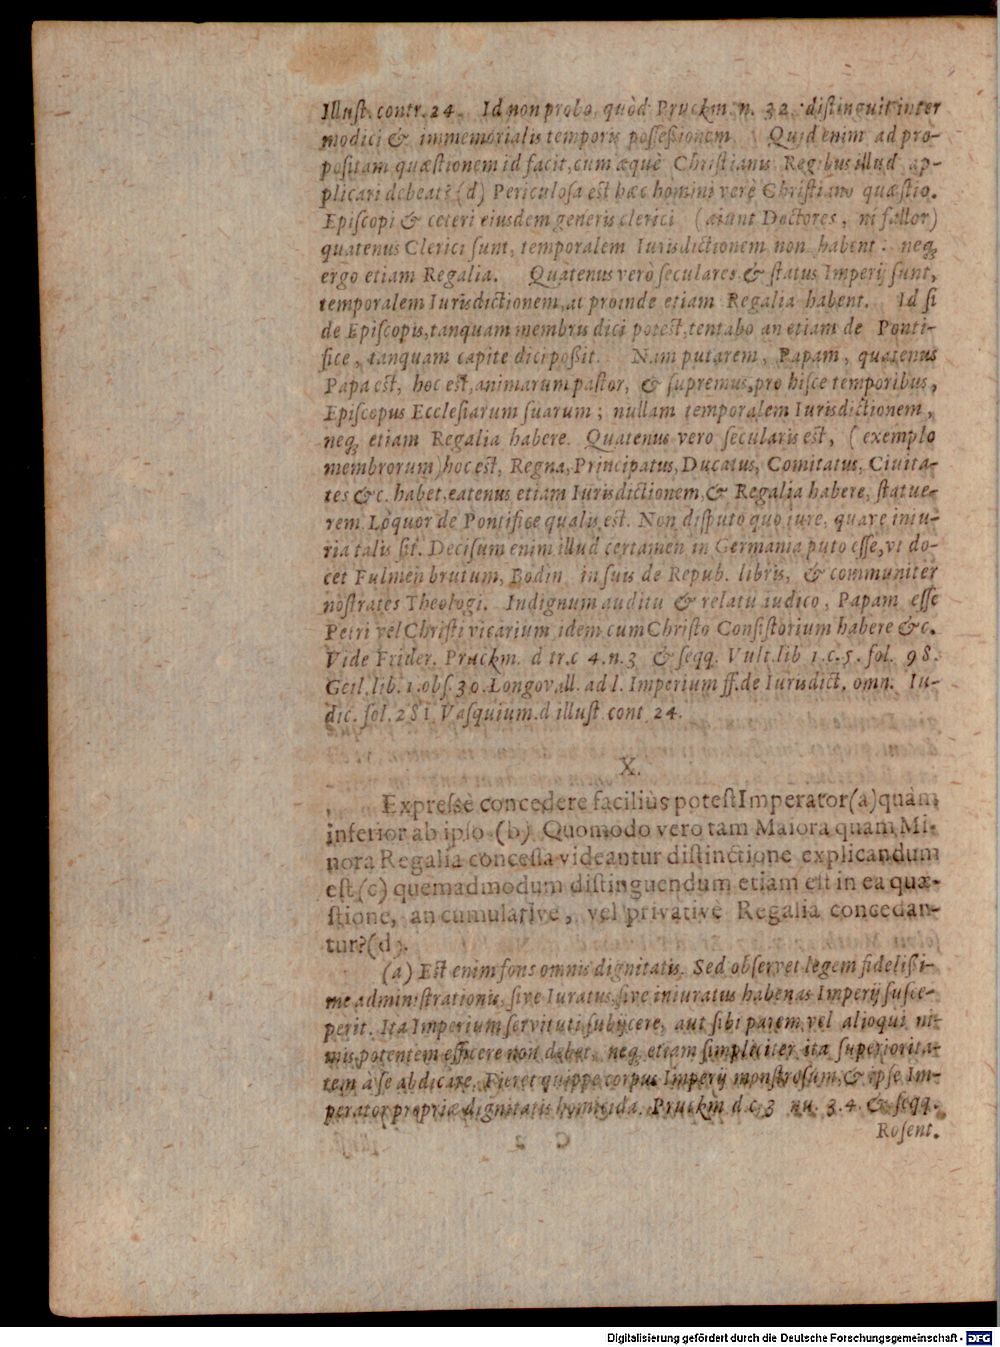 Illust. contr. 24. Id non probo, quòd Pruckm. n. 32. distinguit inter
modici & immemorialis temporis possessionem. Quid enim ad pro-
positam quæstionem id facit, cum æquè Christianis Regibus illud ap-
plicari debeat? (d) Periculosa est hæc homini verè Christiano quæstio.
Episcopi & ceteri eiusdem generis clerici (aiunt Doctores, ni fallor)
quatenus Clerici sunt, temporalem Iurisdictionem non habent: neq́
ergo etiam Regalia. Quatenus verò seculares & status Imperij sunt,
temporalem Iurisdictionem, ac proinde etiam Regalia habent. Id si
de Episcopis, tanquam membris dici potest, tentabo an etiam de Ponti-
fice, tanquam capite dici possit. Nam putarem, Papam, quatenus
Papa est, hoc est, animarum pastor, & supremus, pro hisce temporibus,
Episcopus Ecclesiarum suarum; nullam temporalem Iurisdictionem,
neq́ etiam Regalia habere. Quatenus vero secularis est, (exemplo
membrorum) hoc est, Regna, Principatus, Ducatus, Comitatus, Ciuita-
tes &c. habet, eatenus etiam Iurisdictionem, & Regalia habere, statue-
rem. Loquor de Pontifice qualis est. Non disputo quo iure, quare iniu-
ria talis sit. Decisum enim illud certamen in Germania puto esse, vt do-
cet Fulmen brutum, Bodin. in suis de Repub. libris, & communiter
nostrates Theologi. Indignum auditu & relatu iudico, Papam esse
Petri vel Christi vicarium idem cum Christo Consistorium habere &c.
Vide Frider. Pruckm. d tr. c 4. n. 3 & seqq. Vult. lib 1. c. 5. fol. 98.
Geil. lib. 1. obs. 30. Longovall. ad l. Imperium ff. de Iurisdict. omn. Iu-
dic. fol. 281. Vasquium. d illust cont 24.
X.
Expressè concedere faciliùs potest Imperator (a) quàm
inferior ab ipso (b) Quomodo vero tam Maiora quam Mi-
nora Regalia concessa videantur distinctione explicandum
est (c) quemadmodum distinguendum etiam est in ea quæ-
stione, an cumulativè, vel privativè Regalia concedan-
tur? (d).
(a) Est enim fons omnis dignitatis. Sed observet legem fidelissi-
me administrationis, sive Iuratus, sive iniuratus habenas Imperij susce-
perit. Ita Imperium servituti subijcere, aut sibi parem vel alioqui ni-
mis potentem efficere non debet, neq́ etiam simpliciter ita superiorita-
tem à se abdicare. Fieret quippe corpus Imperij monstrosum, & ipse Im-
perator propriæ dignitatis homicida. Pruckm d. c. 3 nu. 3. 4. & seqq.
Rosent.
Digitalisierung gefördert durch die Deutsche Forschungsgemeinschaft - DFG